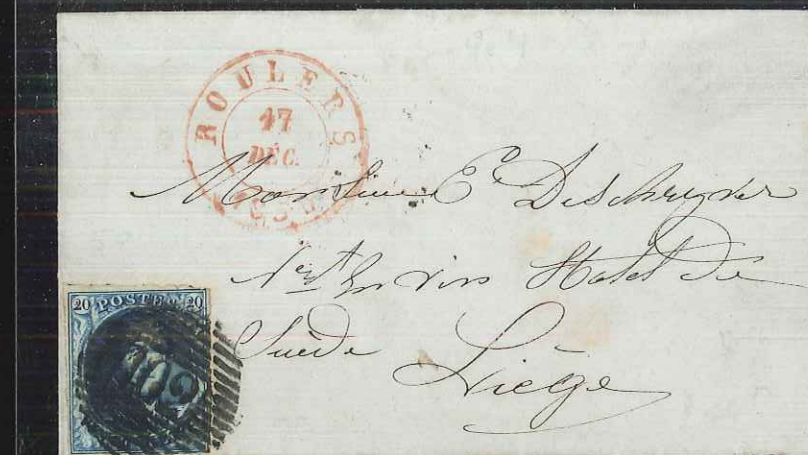 ROULERS
17
DÉC.
Monsieur E Deschryver
Négt En vins Hotel De
Suède Liège
20 POSTES 20